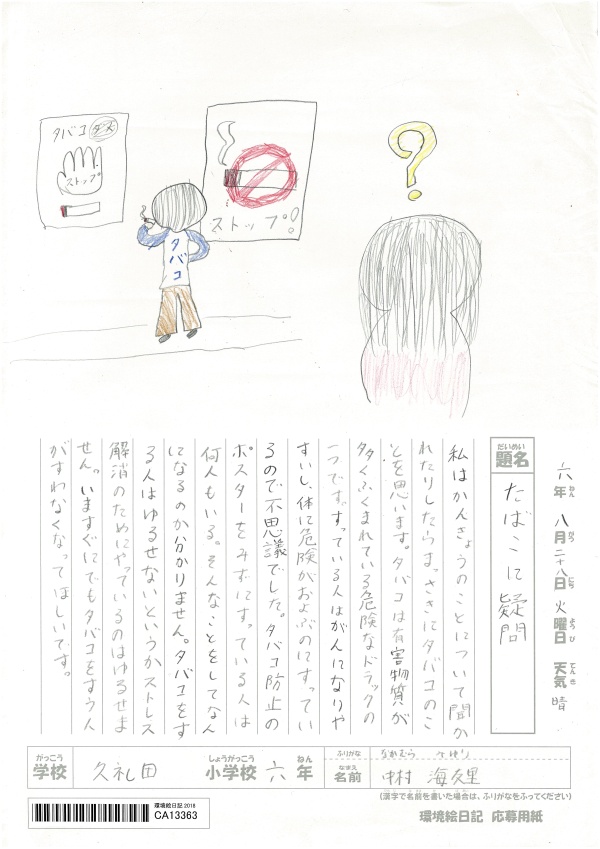 タバコ ダメ
ストップ
ストップ!!
タバコ
?
六年 八月二十八日 火曜日 天気 晴
ねん がつ にち ようび てんき
だいめい
題名 たばこに疑問
私はかんきょうのことについて聞か
れたりしたらまっさきにタバコのこ
とを思います。タバコは有害物質が
多くふくまれている危険なドラックの
一つです。すっている人はがんになりや
すいし、体に危険がおよぶのにすってい
るので不思議でした。タバコ防止の
ポスターをみずにすっている人は
何人もいる。そんなことをしてなん
になるのか分かりません。タバコをす
る人はゆるせないというかストレス
解消のためにやっているのはゆるせま
せん。いますぐにでもタバコをすう人
がすわなくなってほしいです。
がっこう しょうがっこう ねん
学校 久礼田 小学校 六 年
ふりがな なかむら みゆり
なまえ
名前 中村 海友里
(漢字で名前を書いた場合は、ふりがなをふってください)
環境絵日記2018
CA13363
環境絵日記 応募用紙